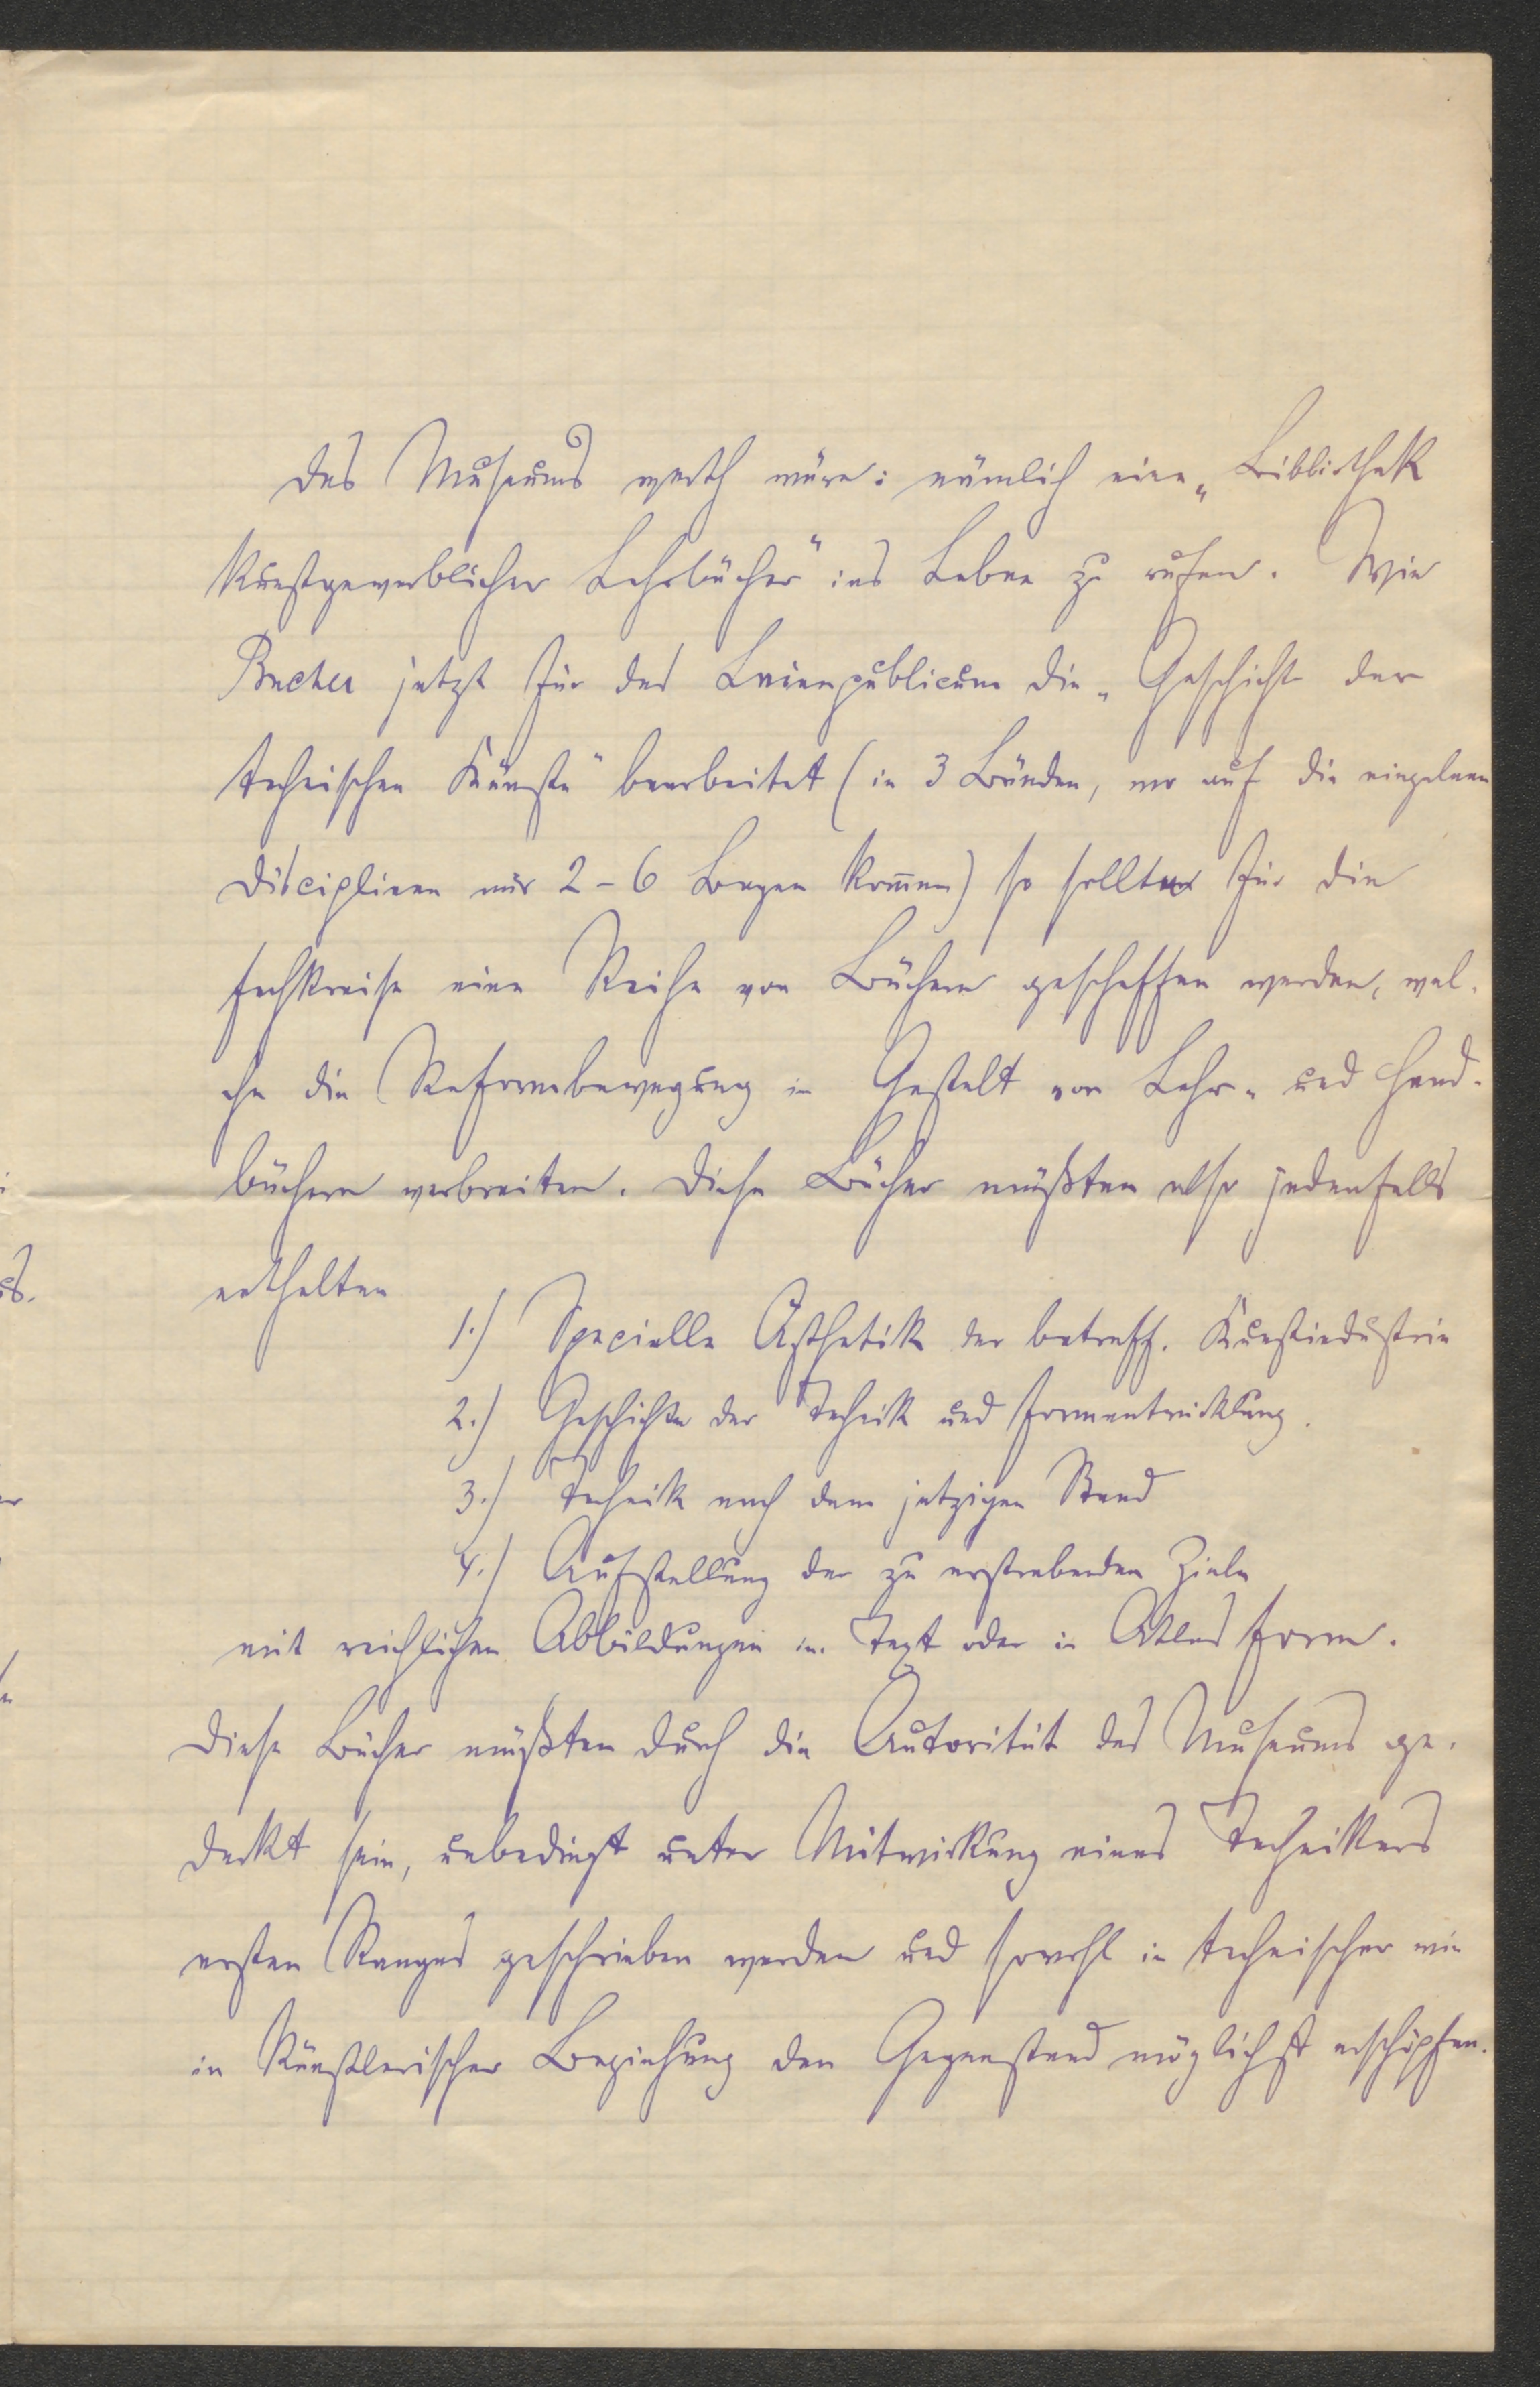 des Museums werth wäre: nämlich eine „Bibliothek
kunstgewerblicher Lehrbücher“ ins Leben zu rufen. Wie
Bucher jetzt für das Laienpublicum die „Geschichte der
technischen Künste“ bearbeitet (in 3 Bänden, wo auf die einzelnen
Disciplinen nur 2-6 Bogen kom̄en) so sollten für die
Fachkreise eine Reihe von Büchern geschaffen werden, wel-
che die Reformbewegung in Gestalt von Lehr- und Hand-
büchern verbreiten. Diese Bücher müßten also jedenfalls
enthalten
1.) Specielle Ästhetik der betreff. Kunstindustrie
2.) Geschichte der Technik und Formentwicklung.
3.) Technik nach dem jetzigen Stand
4.) Aufstellung der zu erstrebenden Ziele
mit reichlichen Abbildungen im Text oder in Atlas form.
Diese Bücher müßten durch die Autorität des Museums ge-
deckt sein, unbedingt unter Mitwirkung eines Technikers
ersten Ranges geschrieben werden und sowohl in technischer wie
in künstlerischer Beziehung den Gegenstand möglichst erschöpfen.